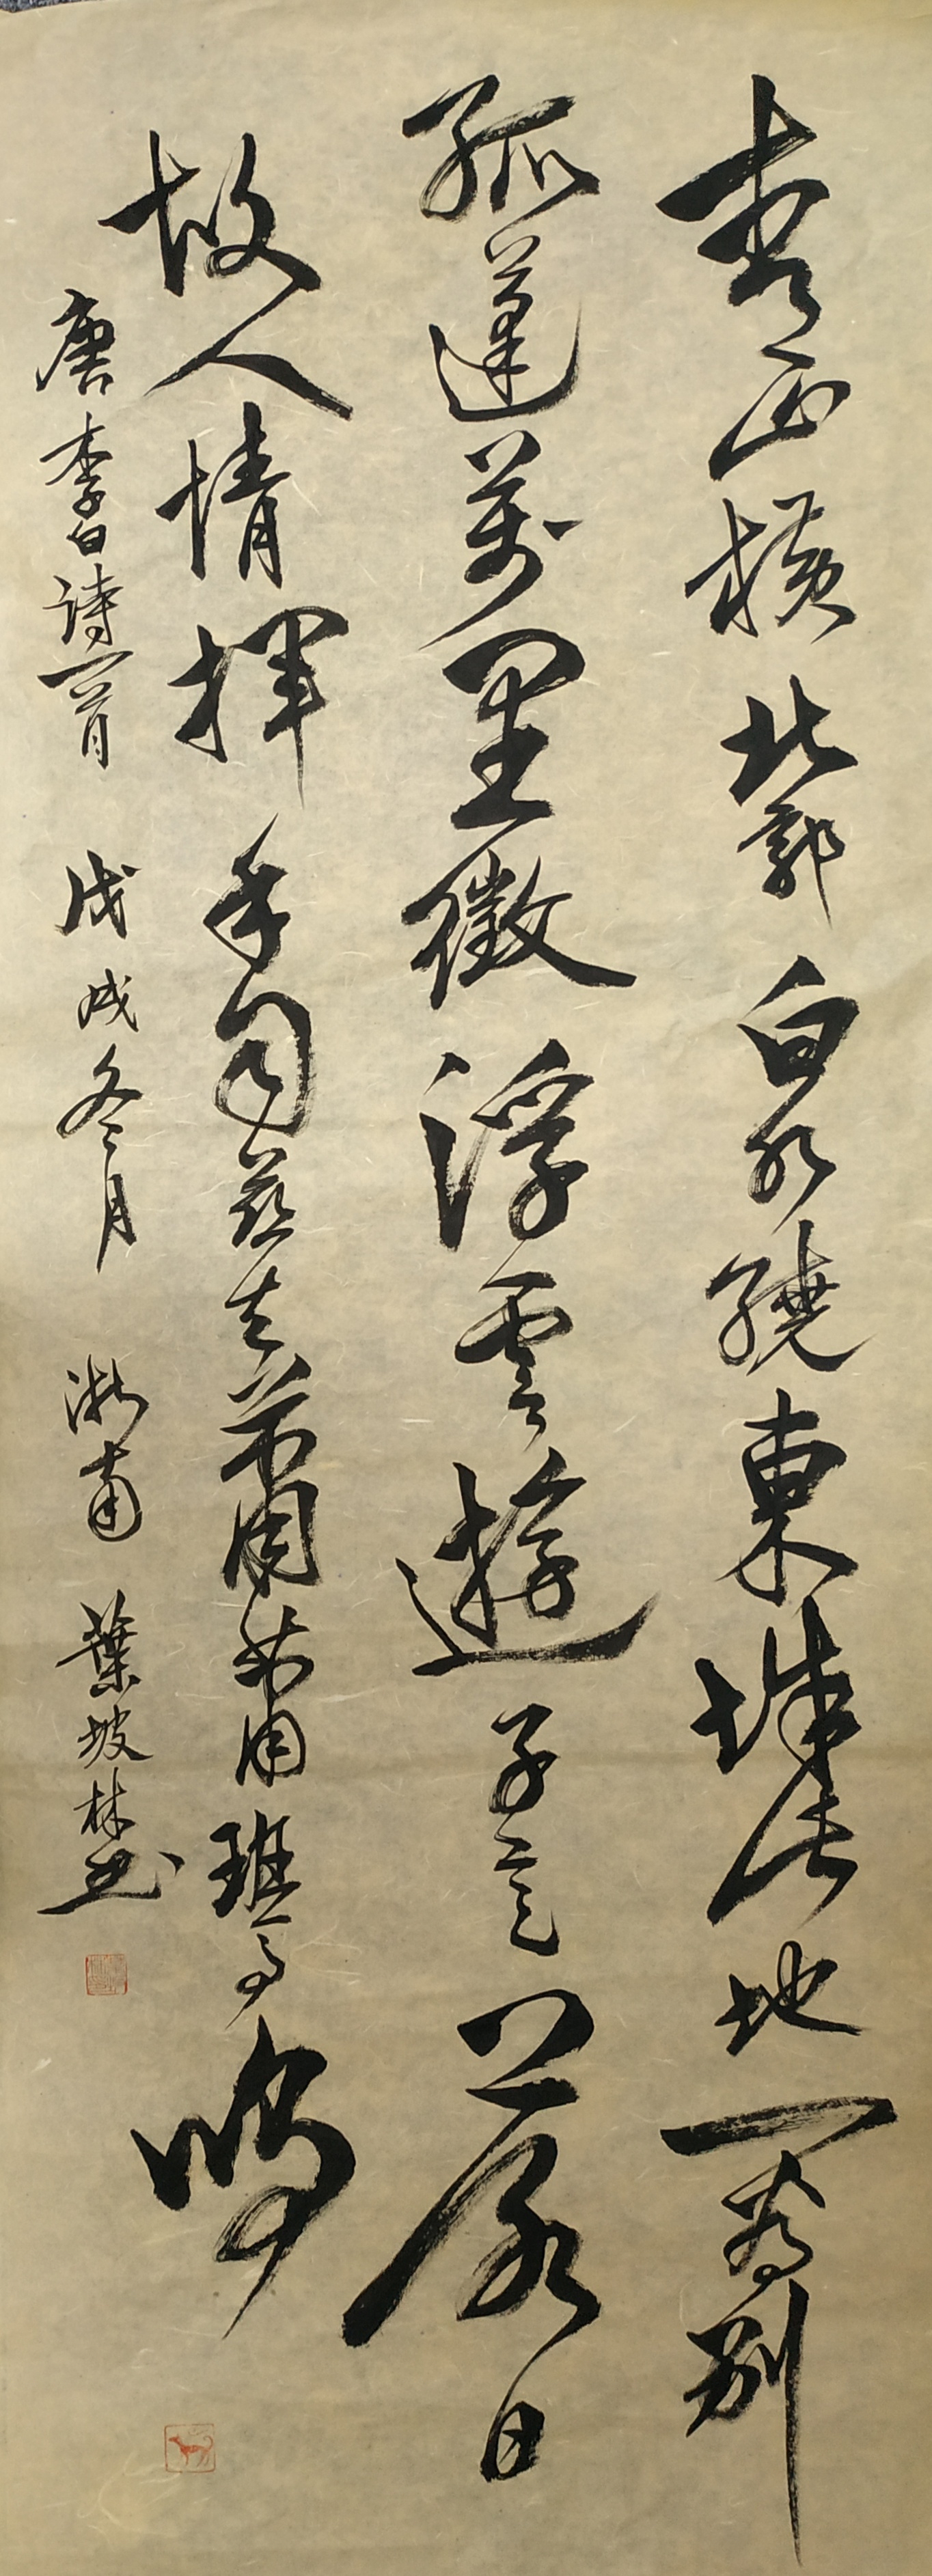 青山橫北郭白水繞東城此地一為別
孤蓬萬里徵浮雲遊子意落日
故人情揮手自茲去蕭蕭班馬鳴
唐李白詩一首 戊戌冬月 浙南 葉坡林書